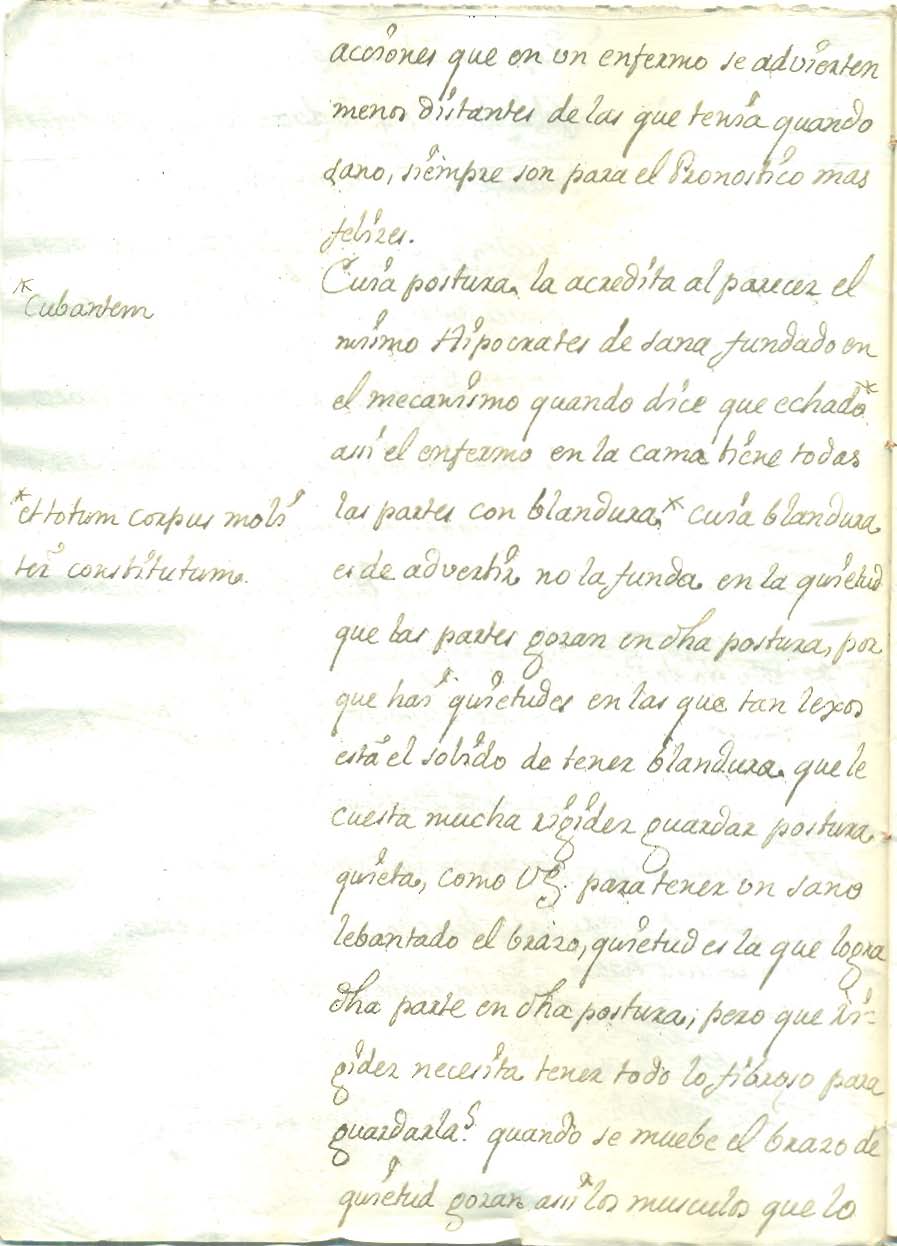 acciones que en un enfermo se advierten
menos distantes de las que tenia quando
sano, siempre son para el Pronostico mas
felizes.
Cuia postura la acredita al parecer el
mismo Hipocrates de sana fundado en
el mecanismo quando dice que echado*
asi el enfermo en la cama tiene todas
las partes con blandura,* cuia blandura
es de advertir no la funda en la quietud
que las partes gozan en dha postura, por
que hai quietudes en las que tan lexos
està el solido de tener blandura que le
cuesta mucha rigidez guardar postura
quieta, como Vg. para tener un sano
lebantado el brazo, quietud es la que logra
dha parte en dha postura, pero que ri-
gidez necesita tener todo lo fibroso para
guardarla? quando se muebe el brazo de
quietud gozan asi los musculos que lo
* Cubantem
* et totum corpus moli
ter constitutum.